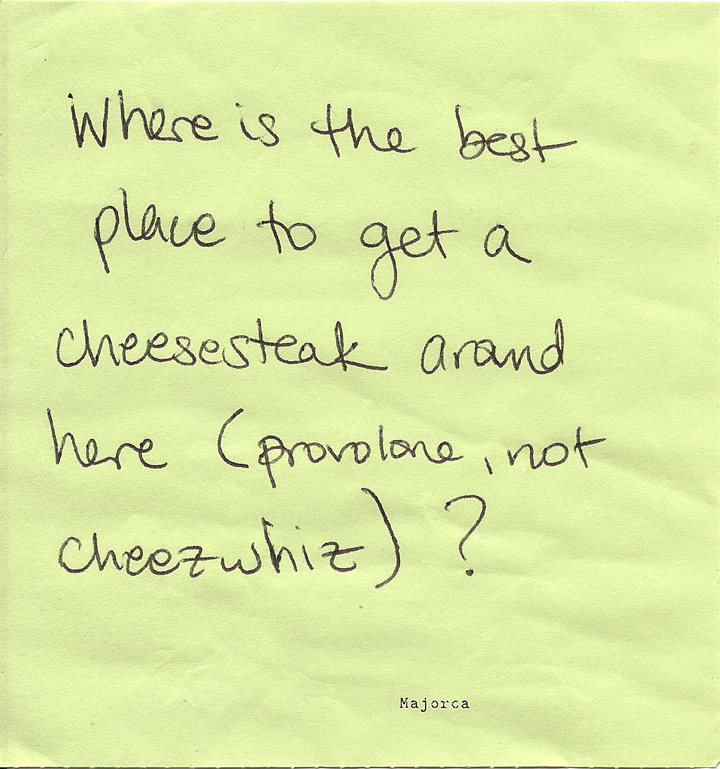 Where is the best
place to get a
cheesesteak around
here (provolone, not
cheezwhiz) ?
Majorca